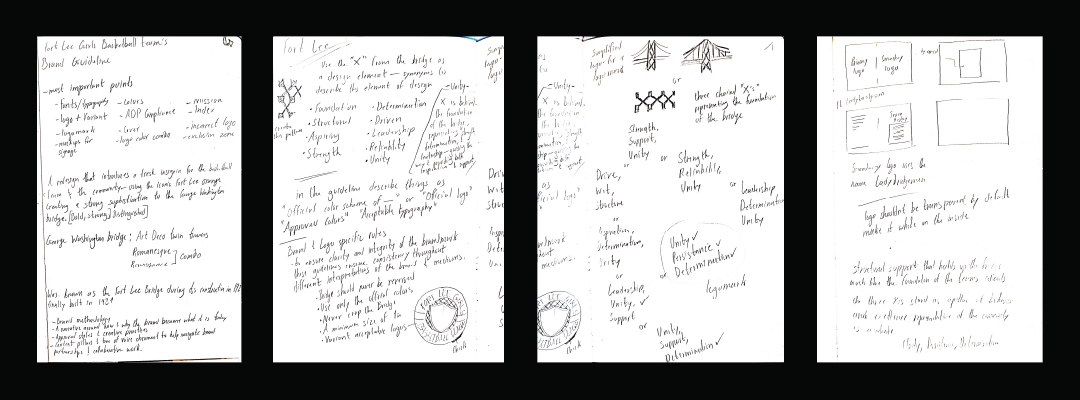 Fort Lee Girls Basketball team's
Brand Guideline
- most important points
- fonts/typography
- logo + variant
- logomark
- mockups for
signage
- colors
- ADP Compliance
- cover
- logo color combo
- mission
- index
- incorrect logo
- exclusion zone
A redesign that introduces a fresh insignia for the basketball
team & the community - using the iconic Fort Lee orange
creating a strong sophistication to the George Washington
bridge. [Bold, strong, Distinguished]
George Washington bridge: Art Deco twin towers
Romanesque
Renaissance
combo
Was known as the Fort Lee Bridge during its construction in 192
finally built in 1931
- Brand methodology
- A narrative around how & why the brand became what it is today
- Approved styles & creative practices
- content pillars & tone of voice document to help navigate brand
partnerships & collaboration work.
Fort Lee
Use the "X" from the bridge as
a design element - synonyms to
describe this element of design
• Foundation
• Structural
• Aspiring
• Strength
• Determination
• Driven
• Leadership
• Reliability
• Unity
Unity -
X is behind
the foundation
of the bridge,
create
this pattern
in the guideline describe things as
"Official color scheme of __" or "Official logo"
"Approved colors" "Acceptable typography"
Brand & Logo specific rules
- to ensure clarity and integrity of the brandmark
these guidelines insure consistency throughout
different interpretations of the brand & mediums.
• Badge should never be reversed
• Use only the official colors
• Never crop the Badge
• A minimum size of 1in
• Variant acceptable logos
FORT LEE GIRLS
BASKETBALL
thick
Simplified
logo for a
logomark
or
three shared "X's"
representing the foundation
of the bridge
Strength,
Support,
Unity
or
Strength,
Reliability,
Unity
or
Leadership,
Determination,
Unity
or
Drive,
Wit,
Structure
or
Inspiration,
Determination,
Unity
or
Leadership,
Unity,
Support
or
Unity,
Support,
Determination
Unity
Persistance
Determination
logomark
Primary
logo
Secondary
logo
Secondary logo uses the
name Lady Bridgemen
logo shouldnt be transparent by default
make it white on the inside
structural support that holds up the
the three X's stand
representative of the community
as a whole
Unity, Persistance, Determination